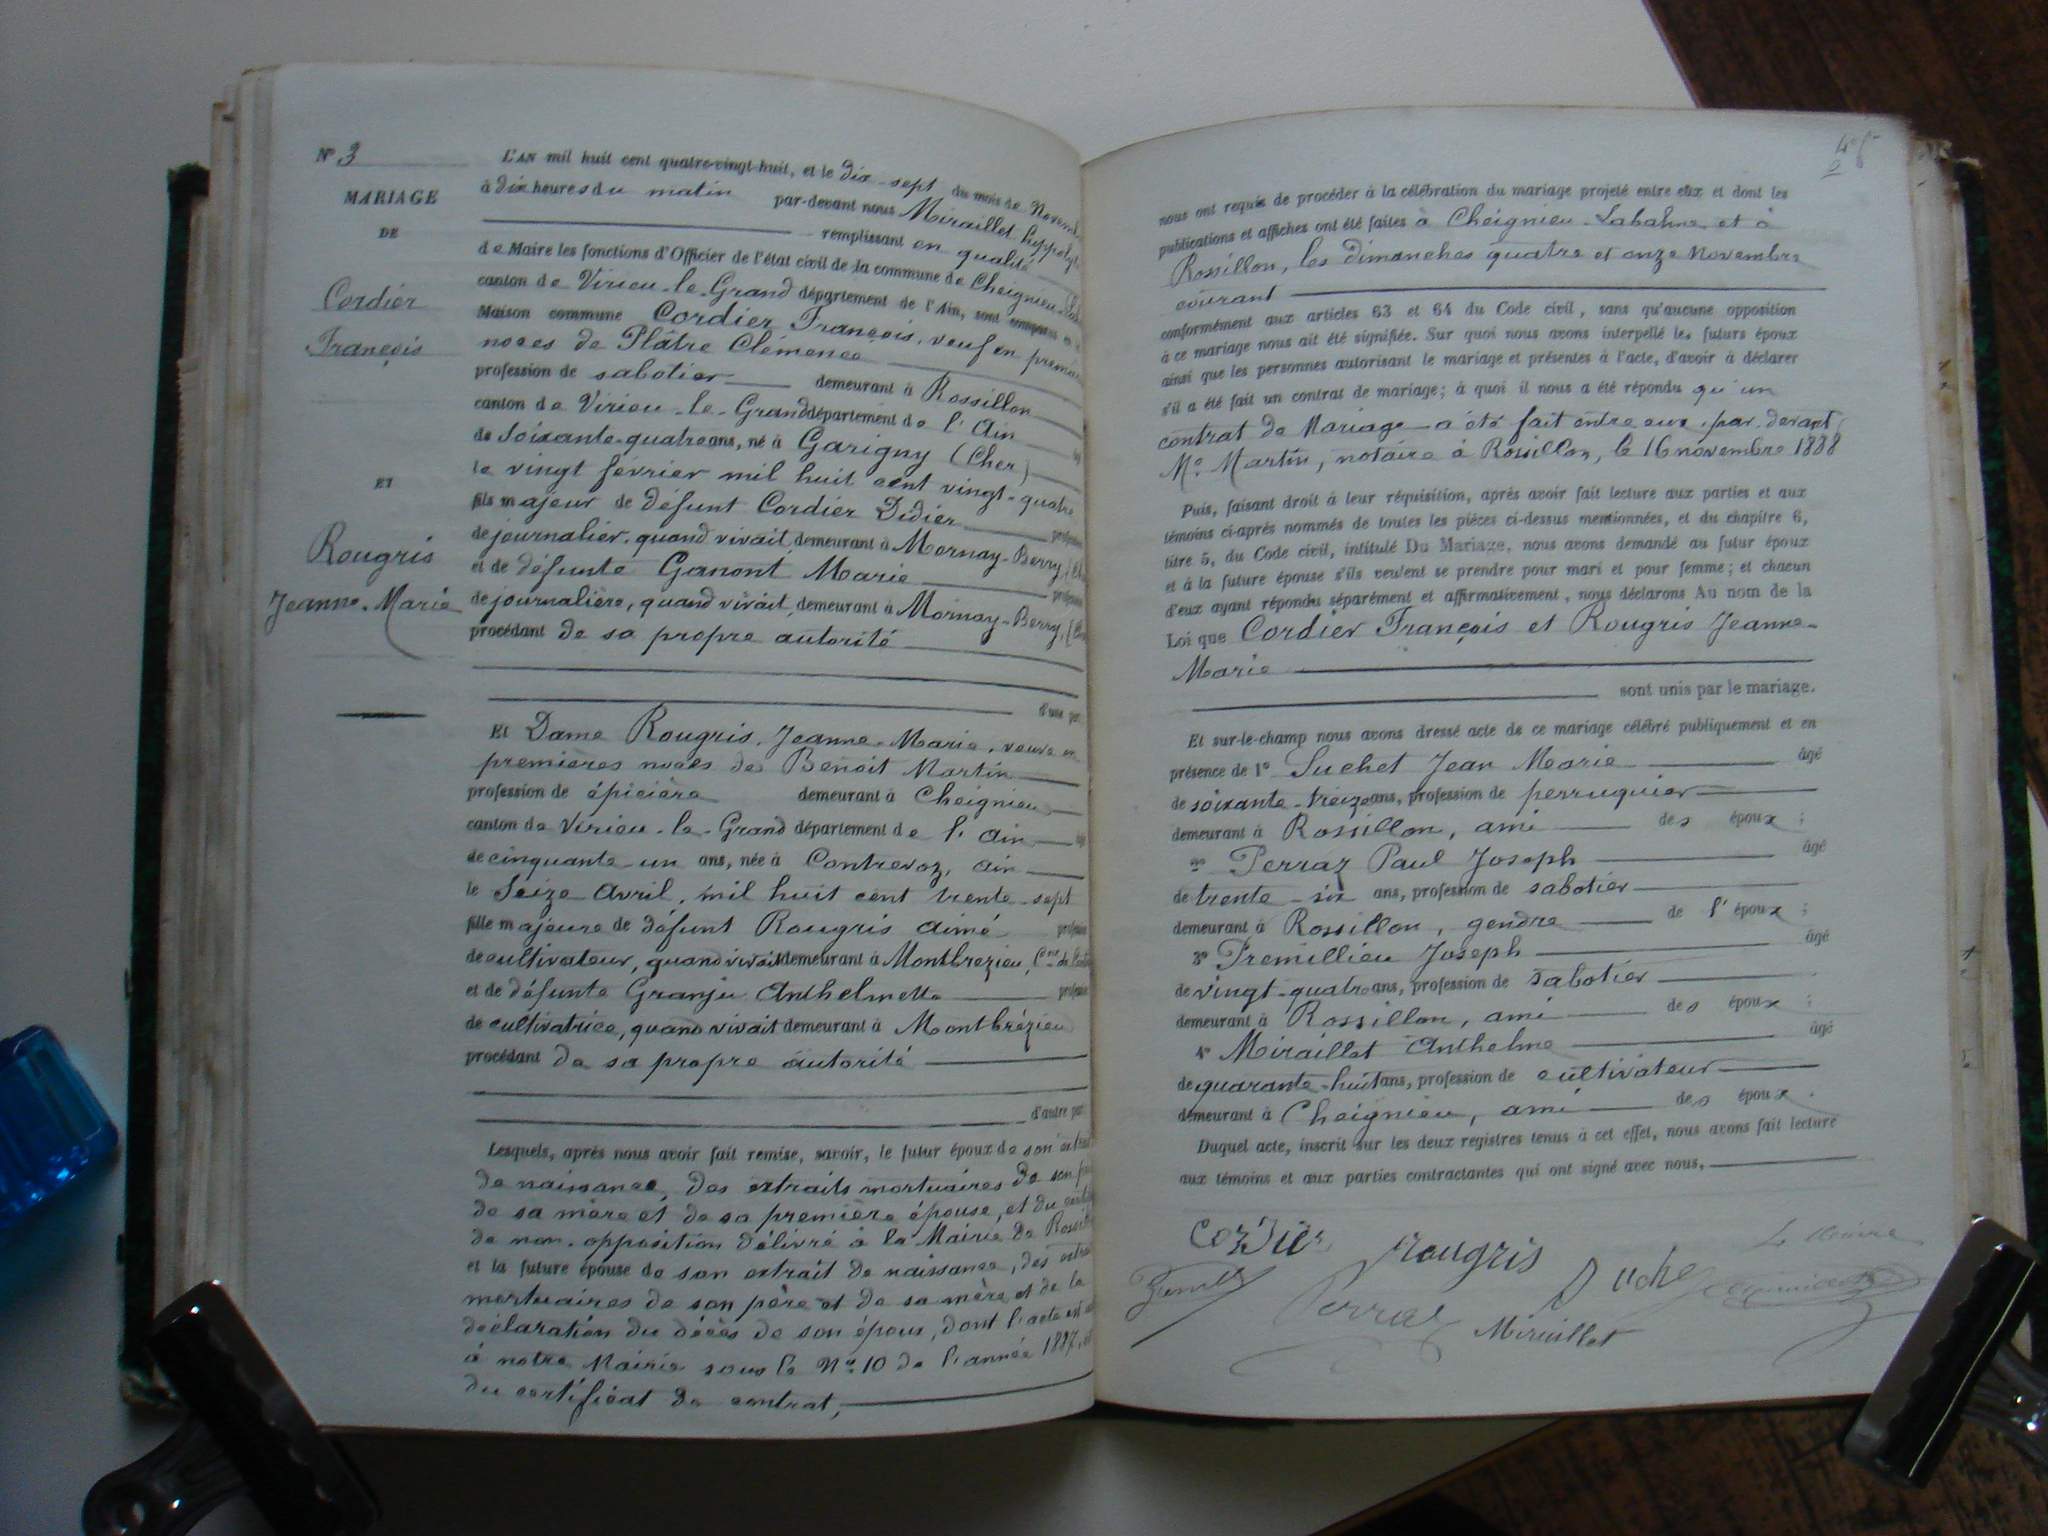 N° 3
MARIAGE
DE
Cordier
François
ET
Rougris
Jeanne-Marie
L'AN mil huit cent quatre-vingt-huit, et le dix-sept du mois de Novemb
à dix heures du matin par-devant nous Miraillet hyppolyte
remplissant en qualité
de Maire les fonctions d'Officier de l'état civil de la commune de Cheignieu
canton de Virieu-le-Grand département de l'Ain, sont comparus
Maison commune Cordier François, veuf en premiè
noces de Plâtre Clémence
profession de sabotier demeurant à Rossillon
canton de Virieu-le-Grand département de l'Ain
de soixante-quatre ans, né à Garigny (Cher)
le vingt février mil huit cent vingt-quatre
fils majeur de défunt Cordier Didier
de journalier, quand vivait, demeurant à Mornay-Berry,
et de défunte Ganont Marie
de journalière, quand vivait, demeurant à Mornay-Berry,
procédant de sa propre autorité
d'une par
Et Dame Rougris, Jeanne-Marie, veuve en
premières noces de Benoit Martin
profession de épicière demeurant à Cheignieu
canton de Virieu-le-Grand département de l'Ain
de cinquante-un ans, née à Contrevoz, Ain
le Seize Avril, mil huit cent trente-sept
fille majeure de défunt Rougris Aimé profession
de cultivateur, quand vivait demeurant à Montbrezieu,
et de défunte Granju Anthelmette profession
de cultivatrice, quand vivait demeurant à Montbrézieu
procédant de sa propre autorité
d'autre par
Lesquels, après nous avoir fait remise, savoir, le futur époux de son extrait
de naissance, des extraits mortuaires de son pè
de sa mère et de sa première épouse, et du certif
de non-opposition délivré à la Mairie de Rossill
et la future épouse de son extrait de naissance, des extra
mortuaires de son père et de sa mère et de la
déclaration du décès de son époux, dont l'acte est
à notre Mairie sous le N° 10 de l'année 1887, et
du certificat de contrat,
nous ont requis de procéder à la célébration du mariage projeté entre eux et dont les
publications et affiches ont été faites à Cheignieu-Labalme et à
Rossillon, les dimanches quatre et onze Novembre
courant
conformément aux articles 63 et 64 du Code civil, sans qu'aucune opposition
à ce mariage nous ait été signifiée. Sur quoi nous avons interpellé les futurs époux
ainsi que les personnes autorisant le mariage et présentes à l'acte, d'avoir à déclarer
s'il a été fait un contrat de mariage; à quoi il nous a été répondu qu'un
contrat de Mariage a été fait entre eux, par devant
Me Martin, notaire à Rossillon, le 16 novembre 1888
Puis, faisant droit à leur réquisition, après avoir fait lecture aux parties et aux
témoins ci-après nommés de toutes les pièces ci-dessus mentionnées, et du chapitre 6,
titre 5, du Code civil, intitulé Du Mariage, nous avons demandé au futur époux
et à la future épouse s'ils veulent se prendre pour mari et pour femme; et chacun
d'eux ayant répondu séparément et affirmativement, nous déclarons Au nom de la
Loi que Cordier François et Rougris Jeanne-
Marie
sont unis par le mariage.
Et sur-le-champ nous avons dressé acte de ce mariage célébré publiquement et en
présence de 1° Suchet Jean Marie âgé
de soixante-treize ans, profession de perruquier
demeurant à Rossillon, ami des époux;
2° Perraz Paul Joseph âgé
de trente-six ans, profession de sabotier
demeurant à Rossillon, gendre de l'époux;
3° Premillieu Joseph âgé
de vingt-quatre ans, profession de sabotier
demeurant à Rossillon, ami des époux;
4° Miraillet Anthelme âgé
de quarante-huit ans, profession de cultivateur
demeurant à Cheignieu, ami des époux.
Duquel acte, inscrit sur les deux registres tenus à cet effet, nous avons fait lecture
aux témoins et aux parties contractantes qui ont signé avec nous.
Cordier Rougris Suchet Le Maire
Perraz Miraillet